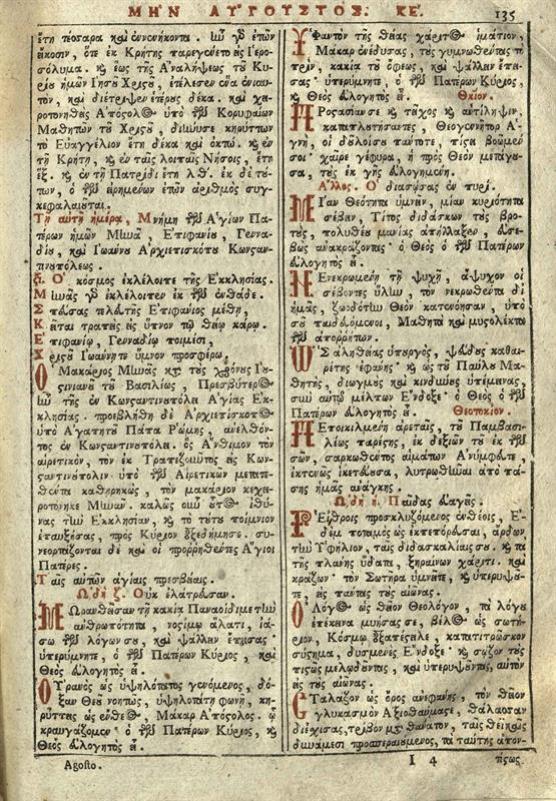 ΜΗΝ ΑΥΓΟΥΣΤΟΣ. ΚΕ. 135
ἔτη τέσσαρα καὶ ἐννενήκοντα.
εἴκοσιν, ὅτε ἐκ Κρήτης παρεγένετο εἰς Ἱερο-
σόλυμα. ἕως τῆς Ἀναλήψεως τοῦ Κυ-
ρίου ἡμῶν Ἰησοῦ Χριστοῦ,
τὸν, καὶ διέτριψεν ἑτέρους δέκα. καὶ χει-
ροτονηθεὶς Ἀπόστολος ὑπὸ τῶν Κορυφαίων
Μαθητῶν τοῦ Χριστοῦ, διήνυσε κηρύττων
τὸ Εὐαγγέλιον ἔτη δέκα καὶ ὀκτώ. καὶ ἐν
τῇ Κρήτῃ, καὶ ἐν ταῖς λοιπαῖς Νήσοις, ἔτη
ἕξ. καὶ ἐν τῇ Πατρίδι ἔτη λθ. ἐκ δὲ τού-
των, ὁ τῶν εἰρημένων ἐτῶν ἀριθμὸς συγ-
κεφαλαιοῦται.
Τῇ αὐτῇ ἡμέρᾳ, Μνήμη τῶν Ἁγίων Πα-
τέρων ἡμῶν Μηνᾶ, Ἐπιφανίου, Γεννα-
δίου, καὶ Ἰωάννου Ἀρχιεπισκόπου Κωνσταν-
τινουπόλεως.
Ὁ κόσμος ἐκλέλοιπε τῆς Ἐκκλησίας.
Μηνᾶς γὰρ ἐκλέλοιπεν ἐκ τῶν ἐνθάδε.
Ἐπιφάνιος μέθη,
Κεῖται τραπεὶς εἰς ὕπνον τῷ θείῳ κάρῳ.
Ἐπιφανίῳ, Γενναδίῳ
Ἰωάννην ὕμνον προσφέρω,
Ὁ Μακάριος Μηνᾶς κατὰ τοὺς χρόνους Ἰου-
στινιανοῦ τοῦ Βασιλέως, Πρεσβύτερος
ἦν τῆς Κωνσταντινουπόλει Ἁγίας Ἐκ-
κλησίας. προεβλήθη δὲ Ἀρχιεπίσκοπος
ὑπὸ Ἀγαπητοῦ Πάπα Ῥώμης, ἀνελθόν-
τος ἐν Κωνσταντινουπόλει. ὃς Ἄνθιμον τὸν
αἱρετικὸν, τὸν ἐκ Τραπεζοῦντος εἰς Κων-
σταντινούπολιν ὑπὸ τῶν Αἱρετικῶν μετατε-
θέντα καθῃρηκὼς, τὸν μακάριον κεχει-
ροτόνηκε Μηνᾶν. καλῶς οὖν οὗτος ἰθύ-
νας τὴν Ἐκκλησίαν, καὶ τὸ τούτου ποίμνιον
ἐπαυξήσας, πρὸς Κύριον ἐξεδήμησε. συ-
νεορτάζονται δὲ καὶ οἱ προρρηθέντες Ἅγιοι
Πατέρες.
Ταῖς αὐτῶν ἁγίαις πρεσβείαις.
ᾨδὴ ζ. Οὐκ ἐλάτρευσαν.
Μωρανθεῖσαν τῇ κακίᾳ Παναοίδιμε τὴν
ἀνθρωπότητα, νοσίμῳ ἅλατι, ἰά-
σω τῶν λόγων σου, καὶ ψάλλειν ἔπεισας·
ὑπερύμνητε, ὁ τῶν Πατέρων Κύριος, καὶ
Θεὸς εὐλογητὸς εἶ.
Οὐρανὸς ὡς ὑψηλότατος γενόμενος, δό-
ξαν Θεοῦ νοητῶς, ὑψηλοτάτῃ φωνῇ, κη-
ρύττεις ὡς ἔνθεος Μάκαρ Ἀπόστολος.
κραυγάζομεν· ὁ τῶν Πατέρων Κύριος, καὶ
Θεὸς εὐλογητὸς εἶ.
Agosto.
Ὑφαντὸν τῆς θείας χάριτος ἱμάτιον,
Μάκαρ ἐνέδυσας, τοὺς γυμνωθέντας τὸ
πρὶν, κακίᾳ τοῦ ὄφεως, καὶ ψάλλειν ἔπει-
σας· ὑπερύμνητε, ὁ τῶν Πατέρων Κύριος,
καὶ Θεὸς εὐλογητὸς εἶ. Θκίον.
τάχος καὶ ἀντίληψιν,
Θεογεννῆτορ Ἁ-
γνὴ, οἱ δοῦλοί σου πάντοτε, πίστει βοῶμέν
σοι· χαῖρε γέφυρα, ἡ πρὸς Θεὸν μετάγου-
σα, τοὺς ἐκ γῆς εὐλογημένη.
Ἄλλος. Ὁ διασώσας ἐν πυρί.
Μίαν Θεότητα ὑμνεῖν, μίαν κυριότητα
σέβειν, Τίτος διδάσκων τοὺς βρο-
τοὺς, πολυθέου μανίας ἀπήλλαξεν, εὐσε-
βῶς ἀνακράζοντας· ὁ Θεὸς ὁ τῶν Πατέρων
εὐλογητὸς εἶ.
Νενεκρωμένη τῇ ψυχῇ, ἄψυχον οἱ
σέβοντες ὕλην, τὸν νεκρωθέντα δι'
ἡμᾶς, ζωοδότην Θεὸν κατενόησαν, ὑπό
σου παιδευόμενοι, Μαθητὰ καὶ μυσολέκτα
τῶν ἀπορρήτων.
Ὡς ἀληθείας ὑπουργὸς, ψεύδους καθαι-
ρέτης ἐφάνης· καὶ ὡς τοῦ Παύλου Μα-
θητὴς, διωγμοὺς καὶ κινδύνους ὑπέμεινας,
σὺν αὐτῷ μέλπων Ἔνδοξε· ὁ Θεὸς ὁ τῶν
Πατέρων εὐλογητὸς εἶ. Θεοτοκίον.
Ἡτοιμασμένη ἀρεταῖς, τοῦ Παμβασι-
λέως παρέστης, ἐκ δεξιῶν τοῦ ἐκ τῶν
σῶν, σαρκωθέντος αἱμάτων Ἀνύμφευτε,
ἐκτενῶς ἱκετεύουσα, λυτρωθῆναι ἀπὸ πά-
σης ἡμᾶς ἀνάγκης.
ᾨδὴ η. Παῖδας εὐαγεῖς.
Ῥείθροις προσκλυζόμενος ἐνθέοις, Ἐ-
δὲμ ποταμὸς ὡς ἐκπεπόρευσαι, ἄρδων
τὴν Ὑφήλιον, ταῖς διδασκαλίαις σου, καὶ τὰ
τῆς πλάνης ὕδατα, ξηραίνων χάριτι. καὶ
κράζων· τὸν Σωτῆρα ὑμνεῖτε, καὶ ὑπερυψοῦ-
τε, εἰς πάντας τοὺς αἰῶνας.
Ὁ Λόγος ὡς θεῖον Θεολόγον,
ὡς σωτή-
ριον, Κόσμῳ ἐξαπέστειλε, κατατιτρῶσκον
σύστημα, δυσμενὲς Ἔνδοξε· καὶ σῶζον τοὺς
πιστῶς μελῳδοῦντας, καὶ ὑπερυψοῦντας, αὐτὸν
εἰς τοὺς αἰῶνας.
Ἐστάλαξον ὡς ὄρος ἀνεφάνης, τὸν θεῖον
γλυκασμὸν Ἀξιοθαύμαστε, θάλασσαν
διέσχισας,
δυνάμεσι
I 4 πίστεως